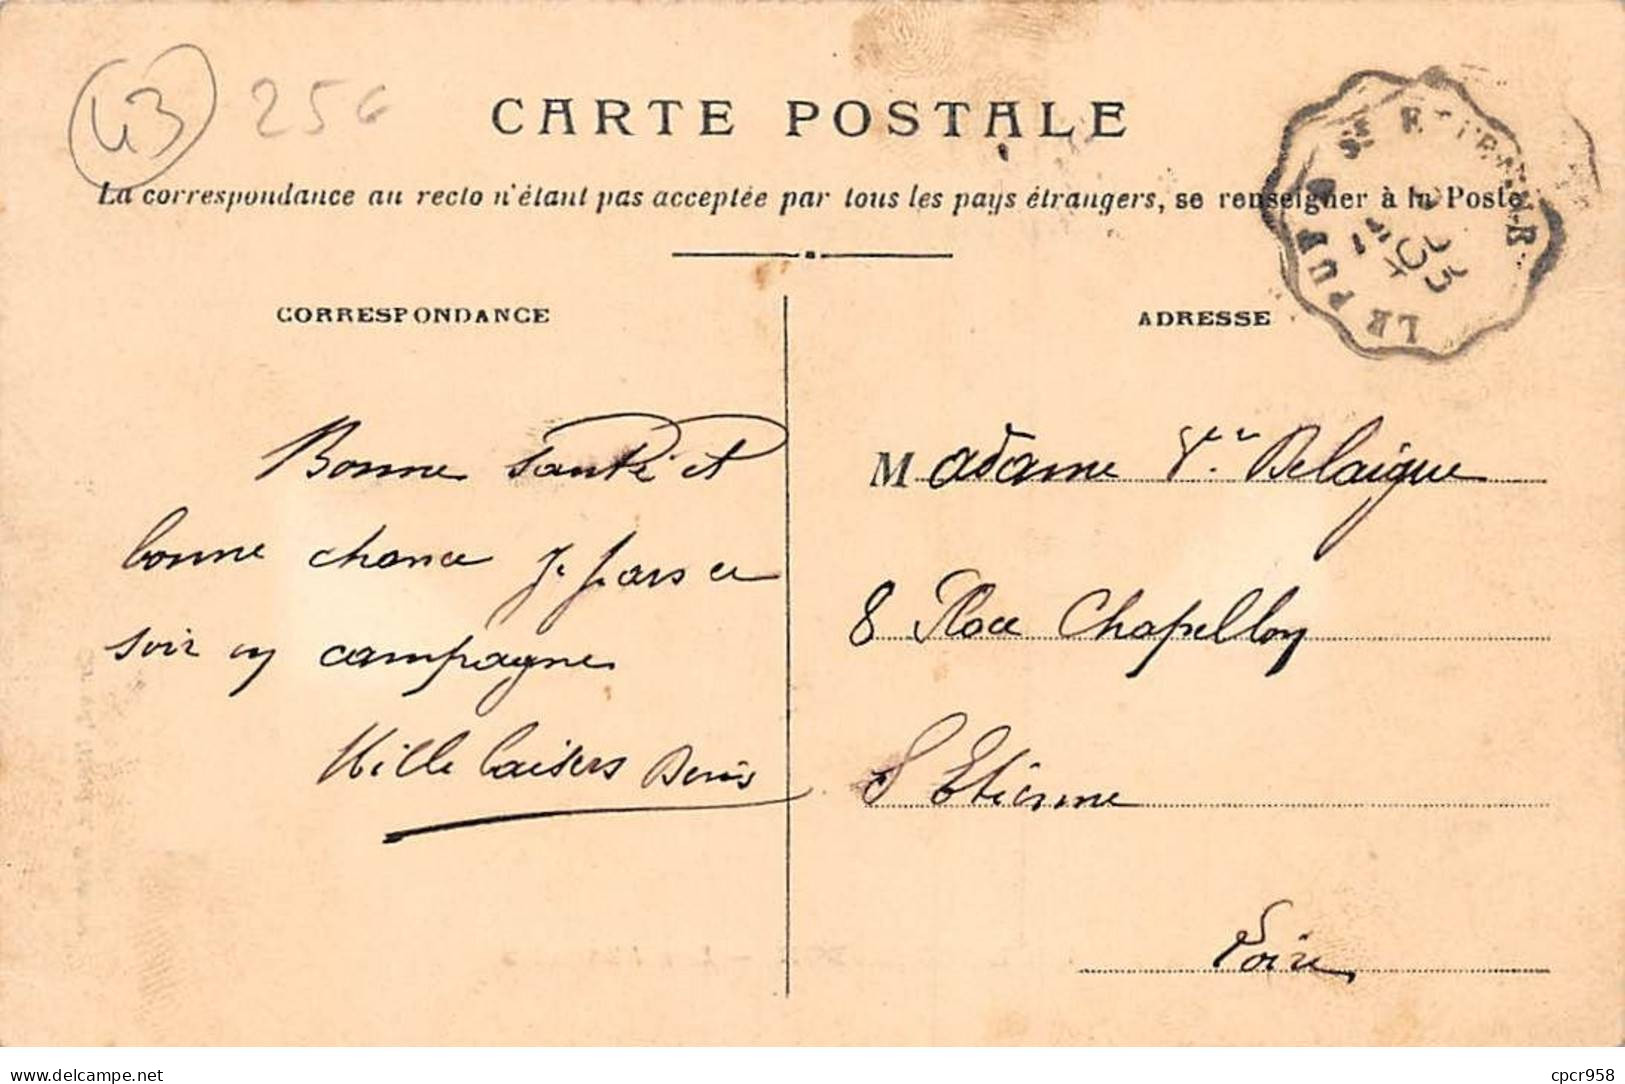 43 256
CARTE POSTALE
La correspondance au recto n'étant pas acceptée par tous les pays étrangers, se renseigner à la Poste
LE PUY A St ETIENNE
CORRESPONDANCE
ADRESSE
Bonne Santé et
bonne chance Je pars ce
soir en campagne
Mille baisers Denis
Madame Vve Delaigue
8 Place Chapellon
St Etienne
Loire
www.delcampe.net
cpcr958